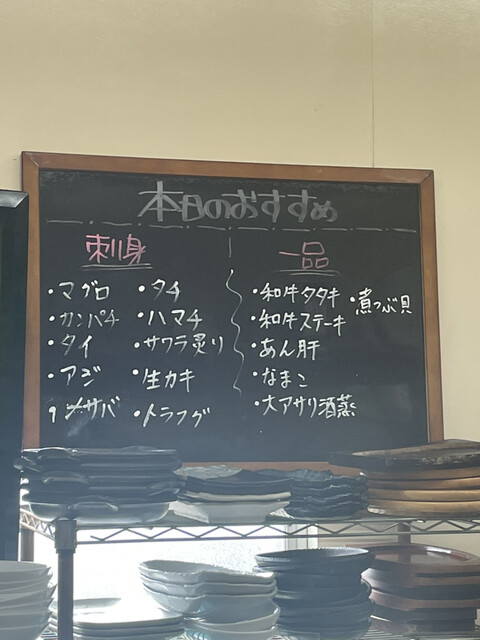 本日のおすすめ
刺身
・マグロ
・カンパチ
・タイ
・アジ
・〆サバ
・タチ
・ハマチ
・サワラ炙り
・生カキ
・トラフグ
一品
・和牛タタキ
・和牛ステーキ
・あん肝
・なまこ
・大アサリ酒蒸
・煮つぶ貝